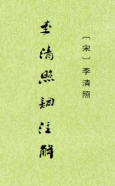 李清照词注解
〔宋〕李清照